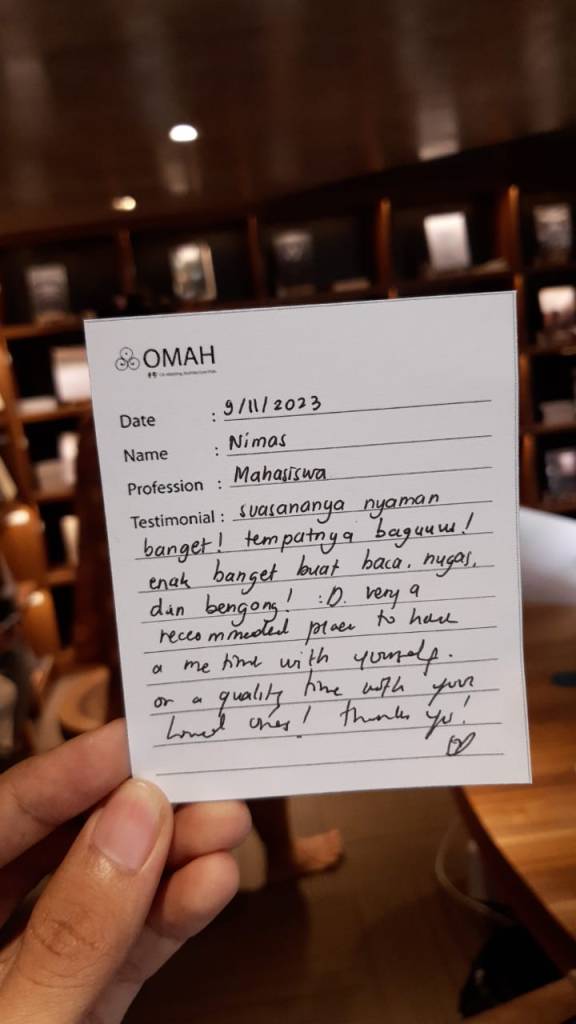 OMAH
Date : 9/11/2023
Name : Nimas
Profession : Mahasiswa
Testimonial : suasananya nyaman
banget! tempatnya baguuus!
enak banget buat baca, nugas,
dan bengong! :D. very a
recommended place to have
a me time with yourself.
or a quality time with your
loved ones! thanks ya!